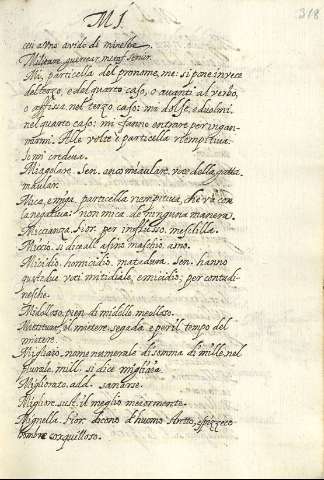 M I.
318
ceu amo avido di minestre
Militare, guerrear, met. senor.
Mi, particella del pronome, me: si pone in vece
del terzo, e del quarto caso, o avanti al verbo,
o affissa. nel terzo caso: mi dolse, e duolmi.
nel quarto caso: mi fanno entrare per ingan-
narmi. Alle volte è particella riempitiva:
Io mi credeva.
Miagolare. Sen. anco miaulare, voce della gatta.
maullar.
Mica, e miga, particella riempitiva, che và con
la negativa: non mica. de ninguna manera.
Miccianza, Fior. per
Miccio, si dice all'asino maschio. asno.
Micidio, homicidio. matadura. Sen. hanno
queste due voci mitidiale, e micidio; per contadi-
nesche.
Midolloso, pien di midolle. meolloso.
Mietitura, el mietere. segada. e per il tempo del
mietere.
Migliaio, nome numerale di somma di mille, nel
plurale. mill. si dice migliaia
Migliorato, add. sanarse.
Migliore, sust. il meglio. meiormente.
Mignella, Fior. dicono d'huomo stretto, e
ombre